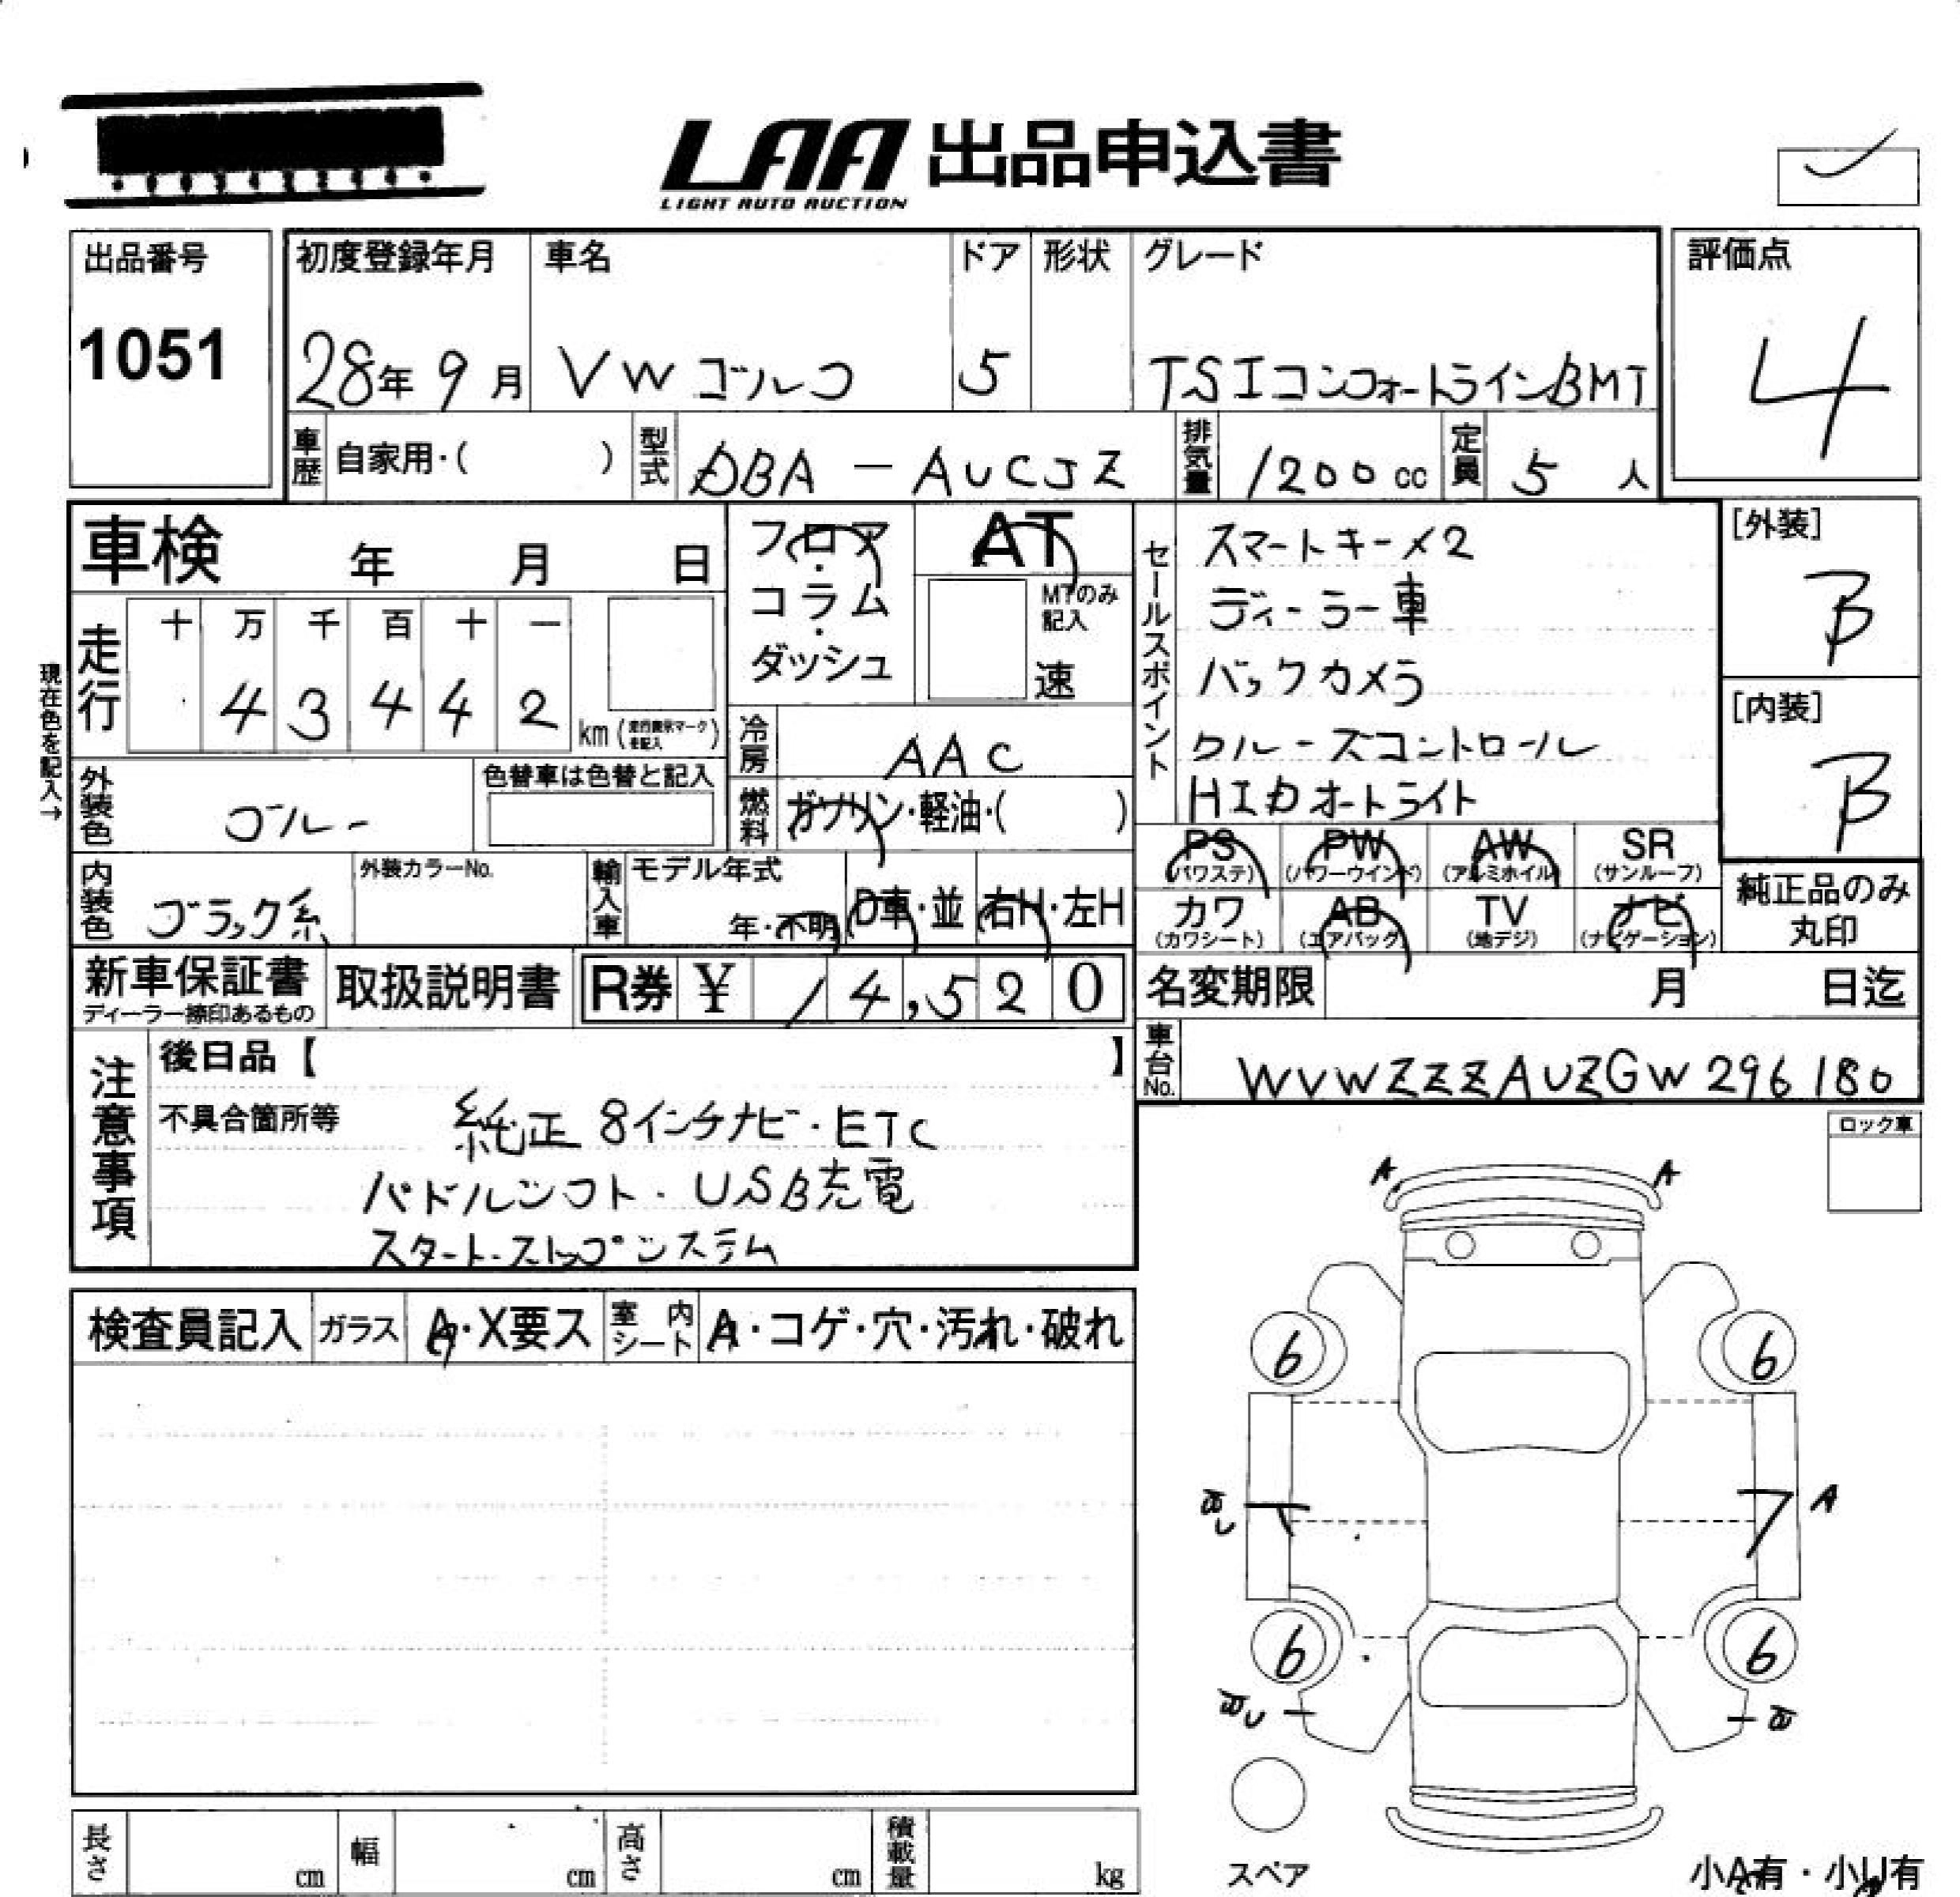 LAA 出品申込書
LIGHT AUTO AUCTION
出品番号
1051
初度登録年月
28年 9月
車名
VW ゴルフ
ドア
5
形状
グレード
TSIコンフォートラインBMT
評価点
4
車歴 自家用・( )
型式 DBA-AUCJZ
排気量 1200cc
定員 5人
車検 年 月 日
フロア・コラム・ダッシュ
AT
MTのみ記入
速
現在色を記入→
走行
十 万 千 百 十 一
4 3 4 4 2
km(走行距離マークを記入)
冷房 AAC
外装色 ブルー
色替車は色替と記入
燃料 ガソリン・軽油・( )
内装色 ブラック系
外装カラーNo.
輸入車
モデル年式
年・不明
D車・並
右H・左H
セールスポイント
スマートキー×2
ディーラー車
バックカメラ
クルーズコントロール
HIDオートライト
[外装]
B
[内装]
B
PS (パワステ)
PW (パワーウインド)
AW (アルミホイル)
SR (サンルーフ)
カワ (カワシート)
AB (エアバック)
TV (地デジ)
ナビ (ナビゲーション)
純正品のみ丸印
新車保証書
ディーラー捺印あるもの
取扱説明書
R券 ¥ 14,520
名変期限 月 日迄
車台No. WVWZZZAUZGW296180
注意事項
後日品【 】
不具合箇所等
純正 8インチナビ・ETC
パドルシフト・USB充電
スタート・ストップシステム
ロック車
検査員記入
ガラス A・X要ス
室内シート A・コゲ・穴・汚れ・破れ
A A
6 6
A
6 6
スペア
小A有・小U有
長さ cm
幅 cm
高さ cm
積載量 kg